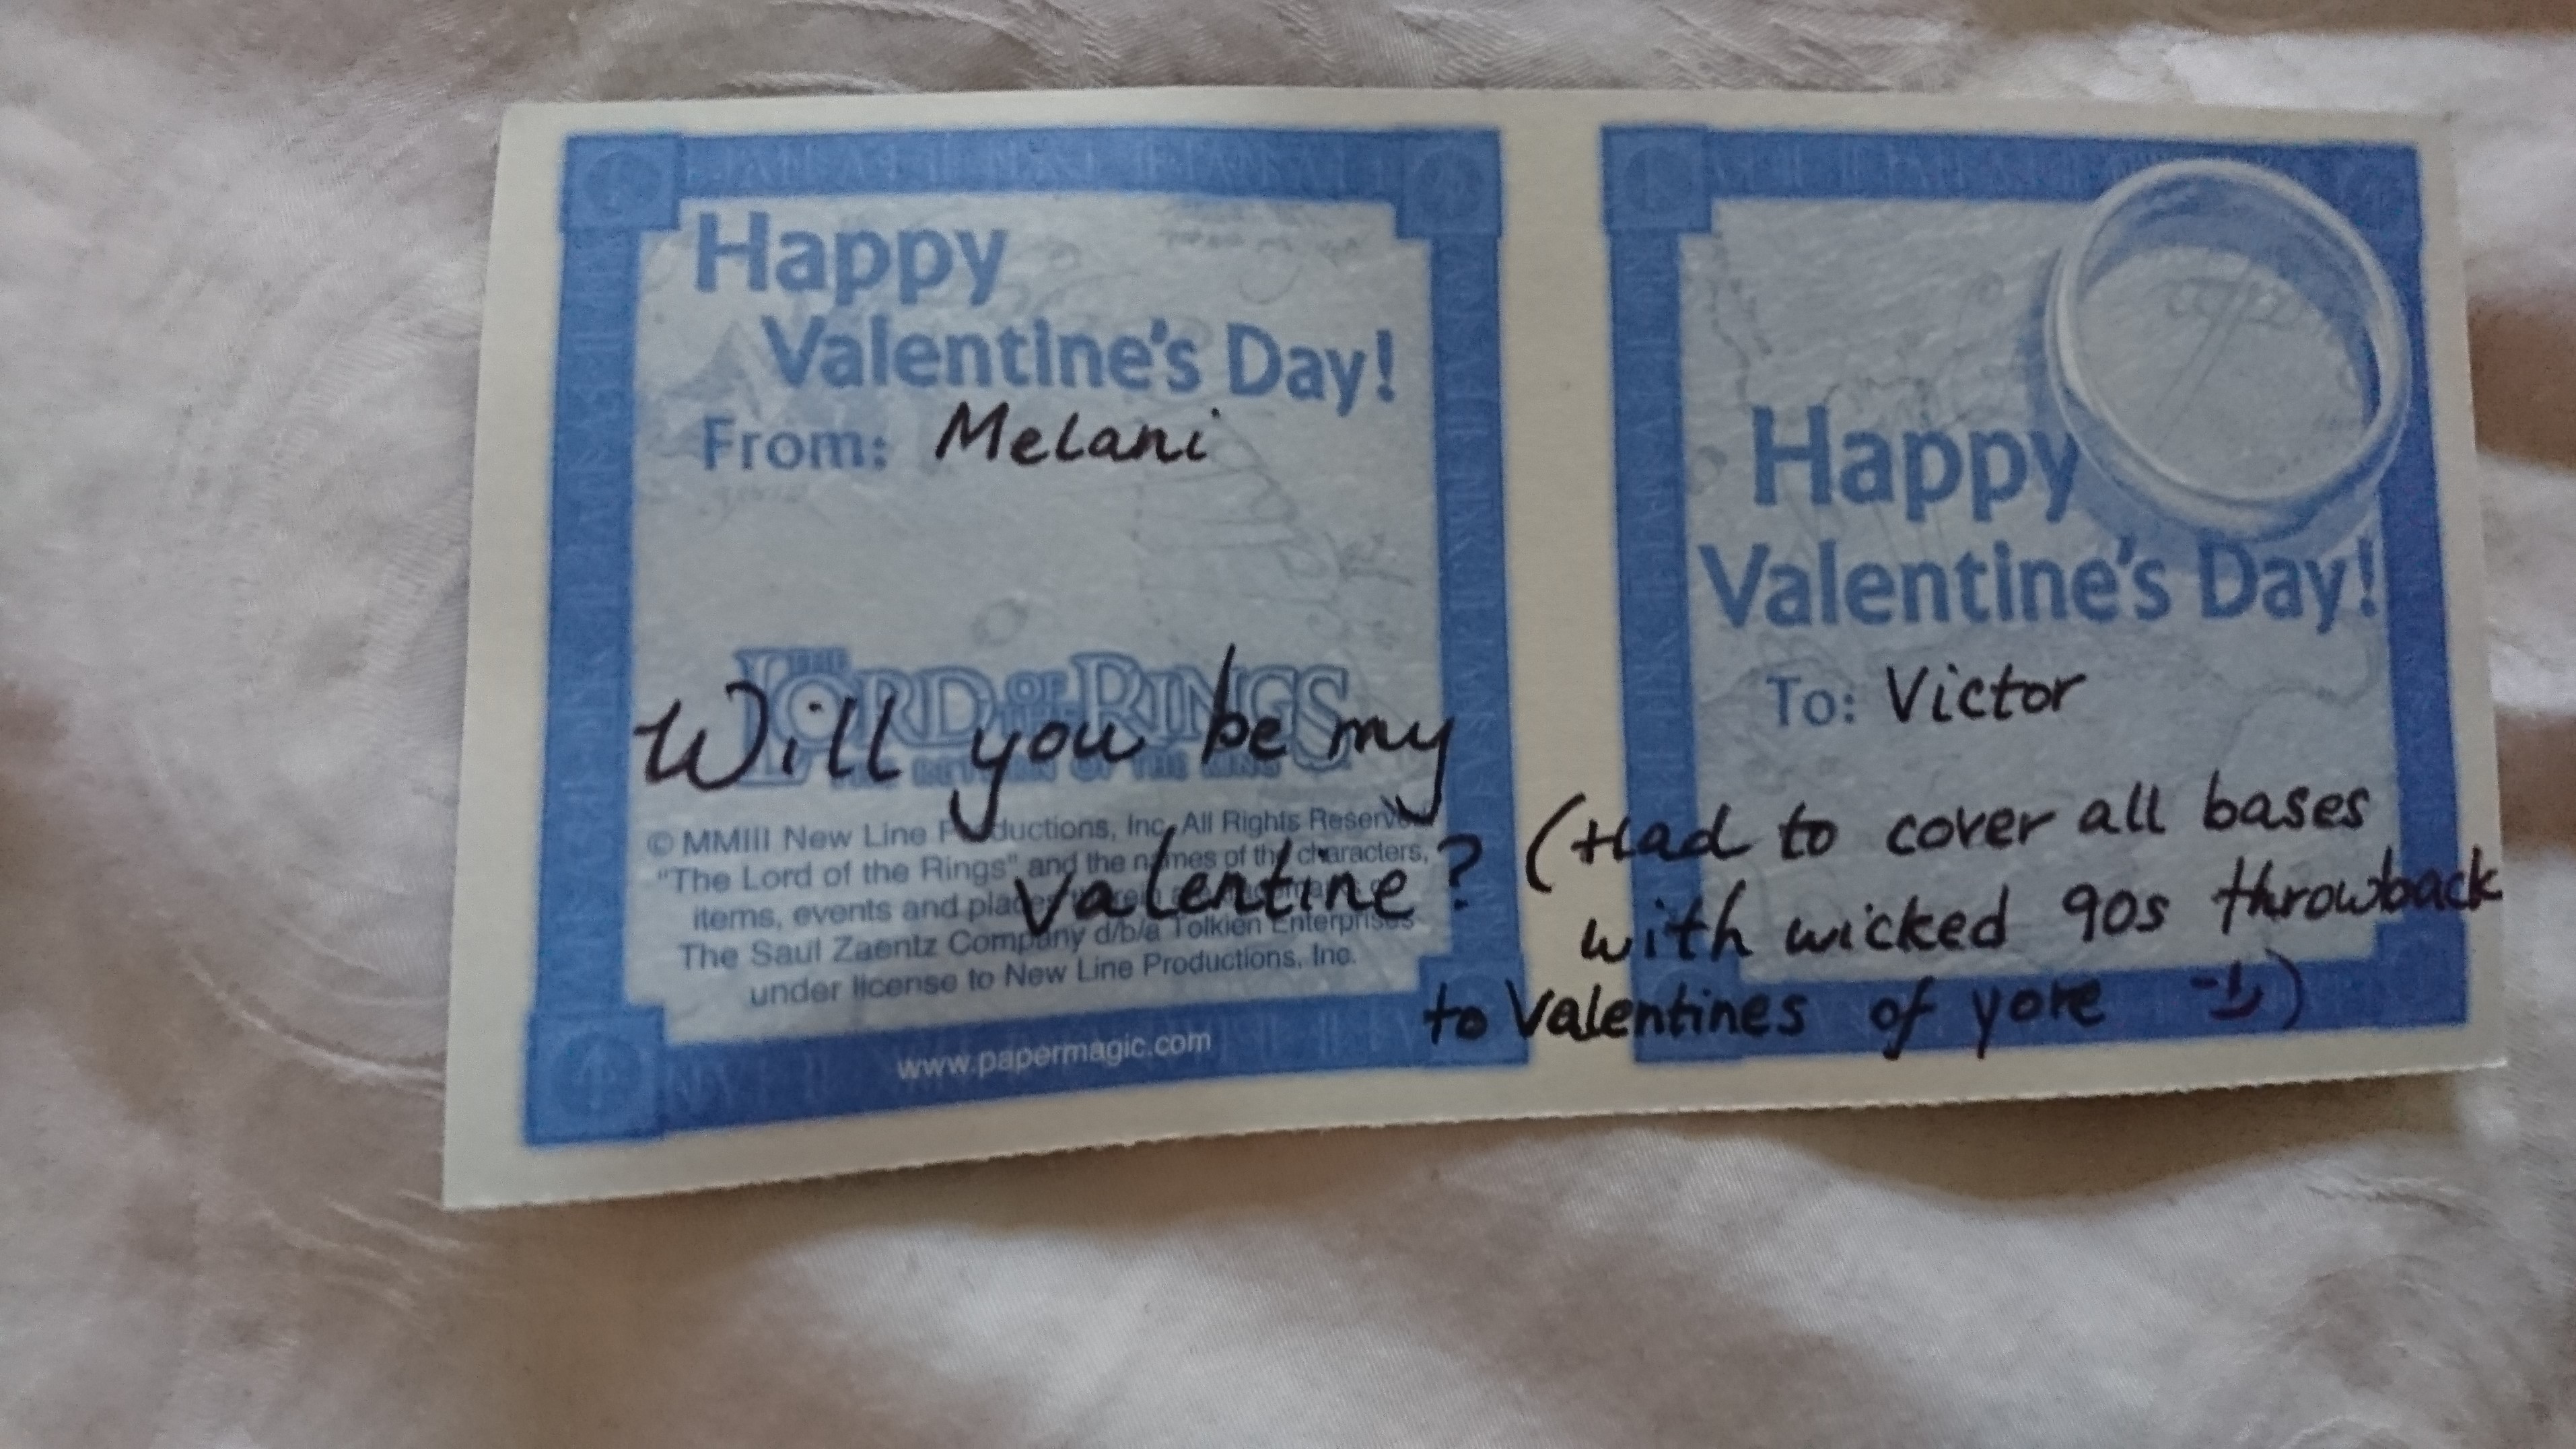 Happy
Valentine's Day!
From: Melani
THE
LORD OF THE RINGS
THE RETURN OF THE KING
Will you be my
Valentine?
© MMIII New Line Productions, Inc. All Rights Reserved.
"The Lord of the Rings" and the names of the characters,
items, events and places therein are
The Saul Zaentz Company d/b/a Tolkien Enterprises
under license to New Line Productions, Inc.
www.papermagic.com
Happy
Valentine's Day!
To: Victor
(Had to cover all bases
with wicked 90s throwback
to Valentines of yore :))